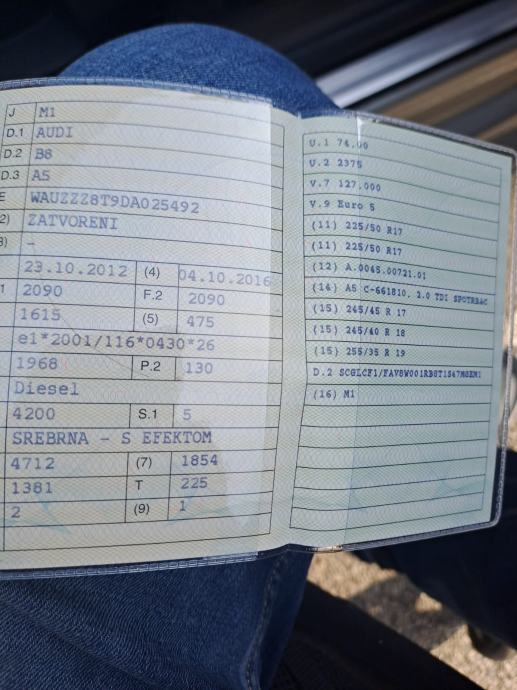 J M1
D.1 AUDI
D.2 B8
D.3 A5
E WAUZZZ8T9DA025492
2) ZATVORENI
3) -
23.10.2012 (4) 04.10.2016
1 2090 F.2 2090
1615 (5) 475
e1*2001/116*0430*26
1968 P.2 130
Diesel
4200 S.1 5
SREBRNA - S EFEKTOM
4712 (7) 1854
1381 T 225
2 (9) 1
U.1 74,00
U.2 2375
V.7 127,000
V.9 Euro 5
(11) 225/50 R17
(11) 225/50 R17
(12) A.0045.00721.01
(14) A5 C-661810, 2.0 TDI SPOTRBAC
(15) 245/45 R 17
(15) 245/40 R 18
(15) 255/35 R 19
D.2
(16) M1